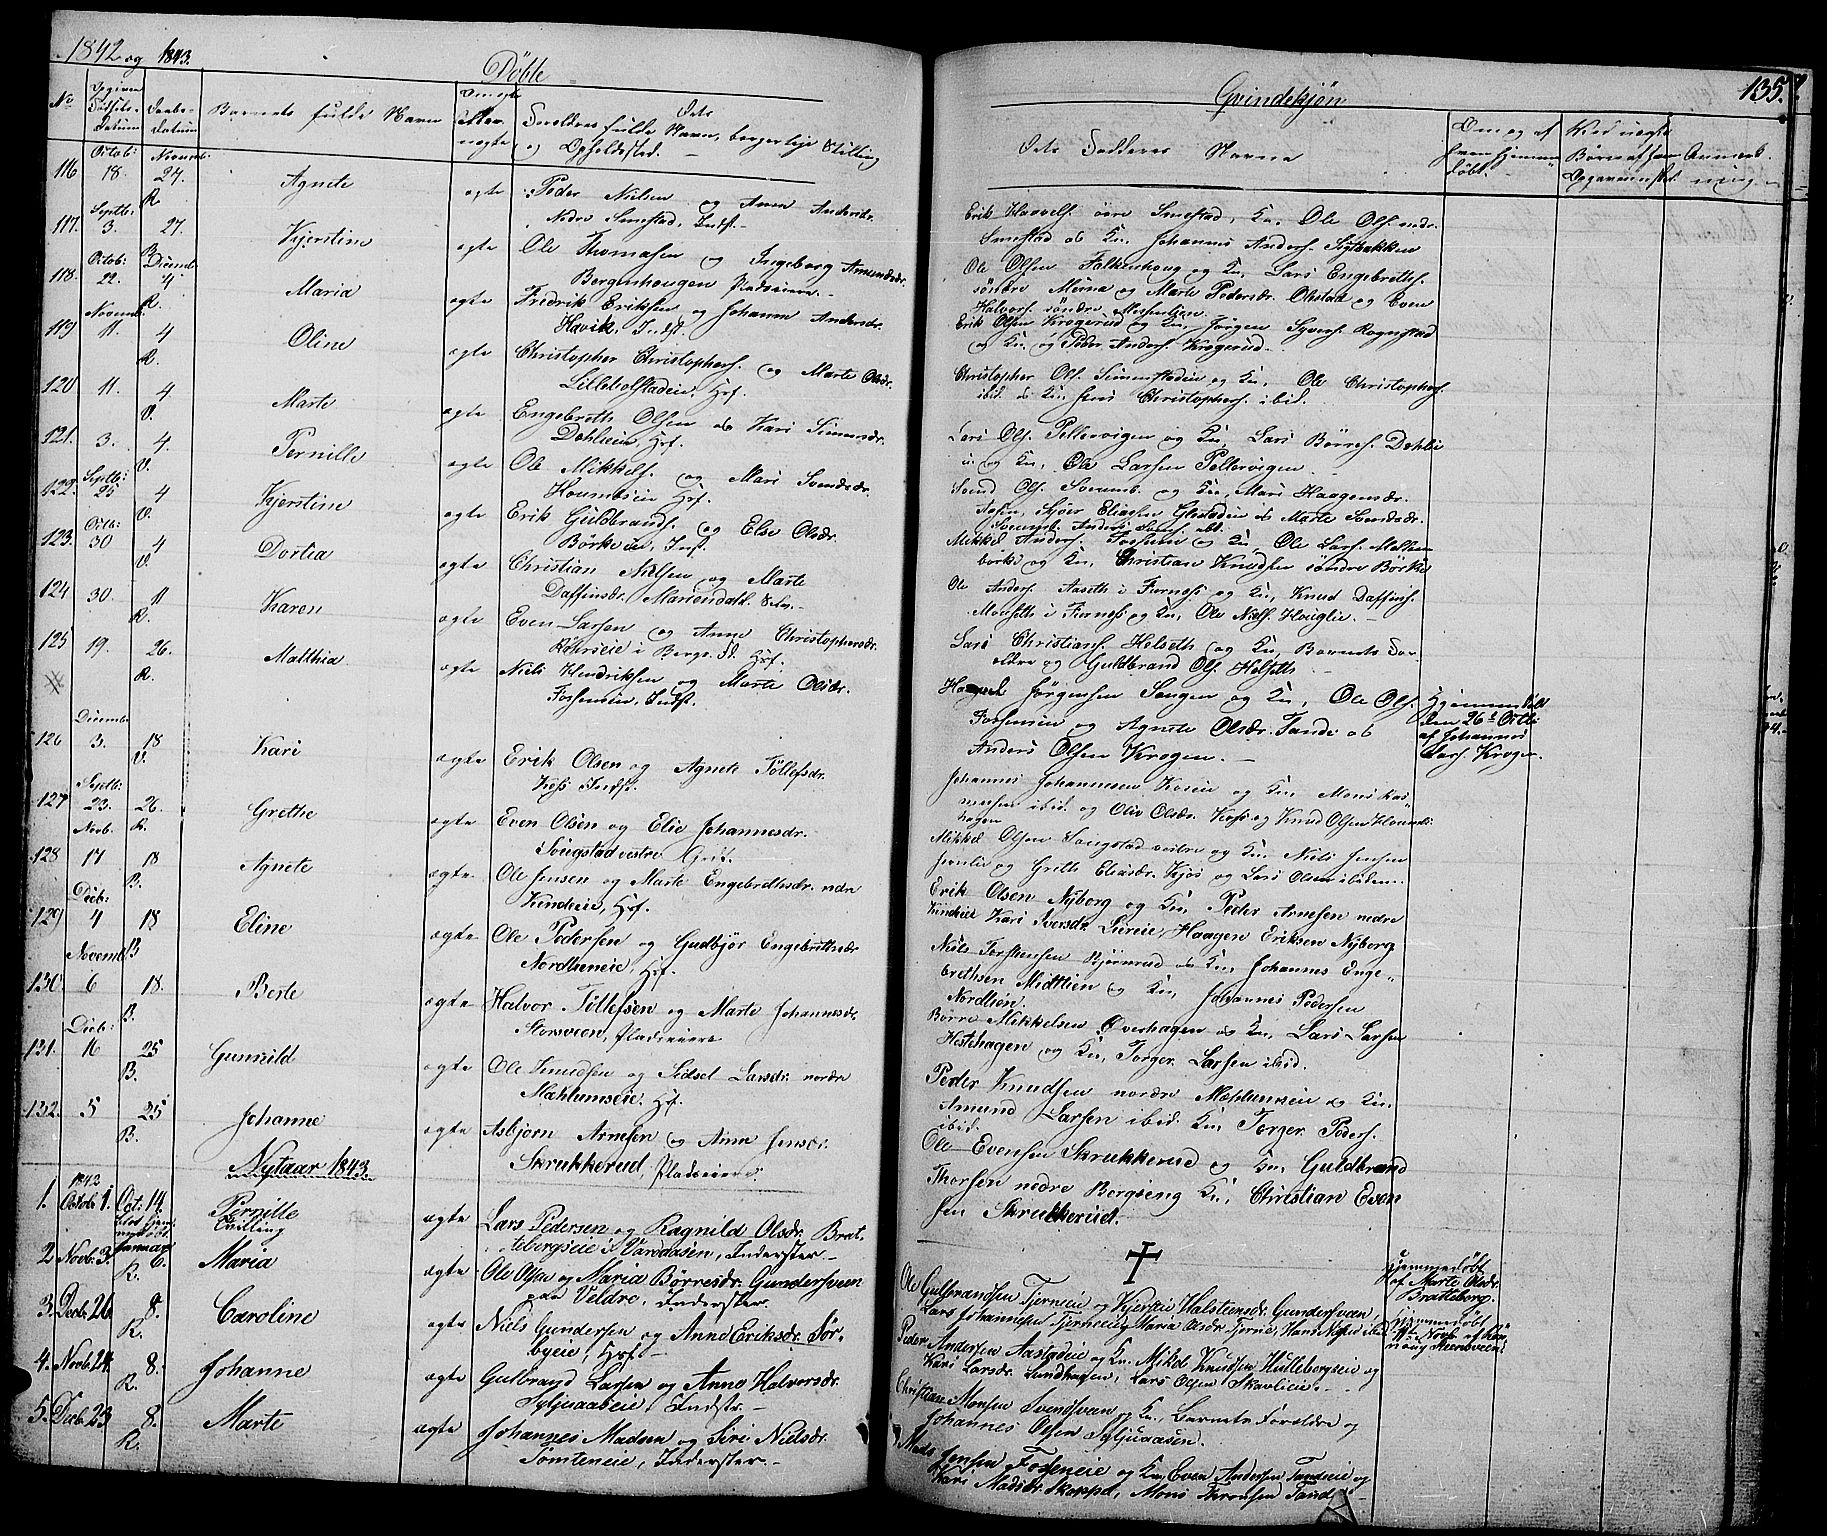 1842 og 1843.
Döbte
No
Opgiven Födsels-Datum
Daabs-datum
Barnets fulde Navn
Om egte eller uegte
Dets Foreldres fulde Navn, borgerlige Stilling og Opholdssted. -
116 Octob: 18. Novemb: 27. R. Agnete ægte Peder Nielsen og Anne Andersdr.
Nedre Smestad, Indst. -
117. Septb: 3. 27. B. Kjerstine ægte Ole Thomasen og Ingeborg Amundsdr.
Bergerhougen Pladseiere. -
118. Octob: 22. Decemb: 4. R. Maria ægte Fredrik Eriksen og Johanne Andersdr.
Havik, Indst.
119 Novemb: 11. 4 R. Oline ægte Christopher Christophers. og Marte Olsdr.
Lillehofstadeie, Hsf.
120 11. 4 V. Marte ægte Engebreth Olsen og Kari Simensdr.
Dehlieie, Hsf.
121. 3. 4 V. Pernille ægte Ole Mikkels. og Mari Svendsdr.
Houmbseie Hsf.
122. Septb: 25 4 V. Kjerstine ægte Erik Guldbrands. og Else Olsdr.
Börkeeie, Inst.
123. Octb: 30 4 V. Dortea ægte Christian Nielsen og Marte
Daffinsdr. Mariendahl. Selv. -
124 30. 11 R. Karen ægte Even Larsen og Anne Christophersdr.
i Bergs. Hsf.
125 19. 26. R. Matthia ægte Niels Hendriksen og Marte Olsdr.
Fossenseie, Indst.
126 Decemb: 3. 18 V. Kari ægte Erik Olsen og Agnete Tollefsdr.
Kjös Indst.
127 Septb: 23. 26. R. Grethe ægte Even Olsen og Elie Johannesdr. -
Songstad vestre Grf.
128 Novb. 17 18 B. Agnete ægte Ole Jensen og Marte Engebrethsdr. nedre
Kindeie, Hsf.
129 Decb: 4 18 B Eline ægte Ole Pedersen og Gudbjör Engebrethsdr
Nordlieneie, Hsf.
130 Novemb 6 18. B. Berte ægte Halvor Tollefsen og Marte Johannesdr.
Storsveen, Pladseiere
131. Decb: 16 25 B. Gunnild ægte Ole Knudsen og Sidsel Larsdr. nordre
Mæhlumseie. Hsf.
132. 5 25 B. Johanne ægte Asbjørn Arnesen og Anne Jensdr.
Skrukkerud, Pladseiere
Nytaar 1843.
1. 1842 Octob. 1. Oct. 14. Pernille
Tvilling ægte Lars Pedersen og Ragnild Olsdr. Brat-
tebergseie i Vardaasen, Inderster -
2. Novb. 3. Januar 6. R. Maria ægte Ole Olsen og Maria Börresdr. Gundersveen
paa Veldre, Inderster.
3. Decb. 26 8. R. Caroline ægte Niels Gundersen og Anne Eriksdr. Sör-
byeie, Hsf. -
4. Novb. 24. 8. R. Johanne ægte Gulbrand Larsen og Anne Halvorsdr.
Syljuaaseie, Indstr. -
5. Decb. 23 8. R. Marte ægte Johannes Madsen og Siri Nielsdr.
Tomteneie, Inderster. -
Qvindekjön
135.
Dets Fadderes Navne
Om og af hvem hjemmedöbt. -
Ved uegte Börn af hvem Opgaven skeet.
Anmerkning -
Erik Haavels. övre Smestad, Kn, Ole Ols. nedr.
Smestad og Kn, Johannes Anders. Sygtbakken
Ole Olsen Falkenhoug og Kn, Lars Engebreths.
söndre Merna og Marte Pedersdr. Okstad og Even
Halvors. söndre Messenlien.
Erik Olsen Krogerud og Kn, Jörgen Syvers. Rognstad
og Kn, og Peder Anders. Krogerud. -
Christopher Ols. Simenstadeie og Kn, Ole Christophers.
ibid. og Kn, Jens Christophers. ibid.
Lars Ols. Pellervigen og Kn, Lars Börres. Dehlie
eie og Kn, Ole Larsen Pellervigen
Svend Ols. Sveumb. og Kn, Mari Haagensdr.
Eliasen Glæstadeie og Marte Svendsdr.
Sveumst. Anders ibd.
Mikkel Anders. Fossum og Kn, Ole Lars. Mellem
börke og Kn, Christian Knudsen söndre Börke
Ole Anders. Aaseth i Furnes og Kn, Knud Daffins.
Monseth i Furnes og Kn, Ole Niels. Houglie. -
Lars Christians. Helseth og Kn, Barnets For-
eldre og Guldbrand Ols. Helseth
Jörgensen Saugen og Kn, Ole Ols.
Fossenseie og Agnete Olsdr. Tande og
Anders Olsen Krogen. -
Hjemmedöbt
den 26de Octb:
af Johannes
Lars. Krogen.
Johannes Johannesen Kseie og Kn, Mons Ras-
musen ibid. og Oliv Olsdr. Kjös og Knud Olsen Houmb-
hagen
Mikkel Olsen Songstad vestre og Kn, Niels Jensen
Jemlie og Grethe Eliasdr. Kjös og Lars Olsen ibidem.
Erik Olsen Nyborg og Kn, Peder Arnesen nedre
Kindeie Kari Iversdr. Liereie, Haagen Eriksen Nyborg
Niels Torstensen Björnerud og Kn, Johannes Enge-
brethsen Midtlien og Kn, Johannes Pedersen
Nordlien.
Börre Mikkelsen Overhagen og Kn, Lars Larsen
Hestehagen og Kn, Torger Larsen ibid.
Peder Knudsen nordre Mæhlumseie og Kn,
Amund Larsen ibid. Kn, Torger Peders.
ibid.
Ole Evensen Skrukkerud og Kn, Guldbrand
Thorsen nedre Bergseng Kn, Christian Even-
sen Skrukkerud.
Hjemmedöbt
af Marte Olsdr.
Bratteberg.
Ole Gulbrandsen Tjerneie og Kjersti Halstensdr. Gundersveen
Lars Johannesen Tjerneie og Maria Olsdr. Tjerne, Hans Niels. ibid
Hjemmedöbt
Novb. af
Peder Andersen Aastadeie og Kn. Mikel Knudsen Hulleborgseie og
Kari Larsdr. Lundhagen, Lars Olsen Skavlieie. -
Christian Monsen Svendsveen og Kn, Barnets Foreldre og
Johannes Olsen Syljuaasen.
Mads Jensen Fosseneie og Kn, Even Andersen Tandeeie og
Kari Madsdr. Skappel, Mons Thronsen Tande -